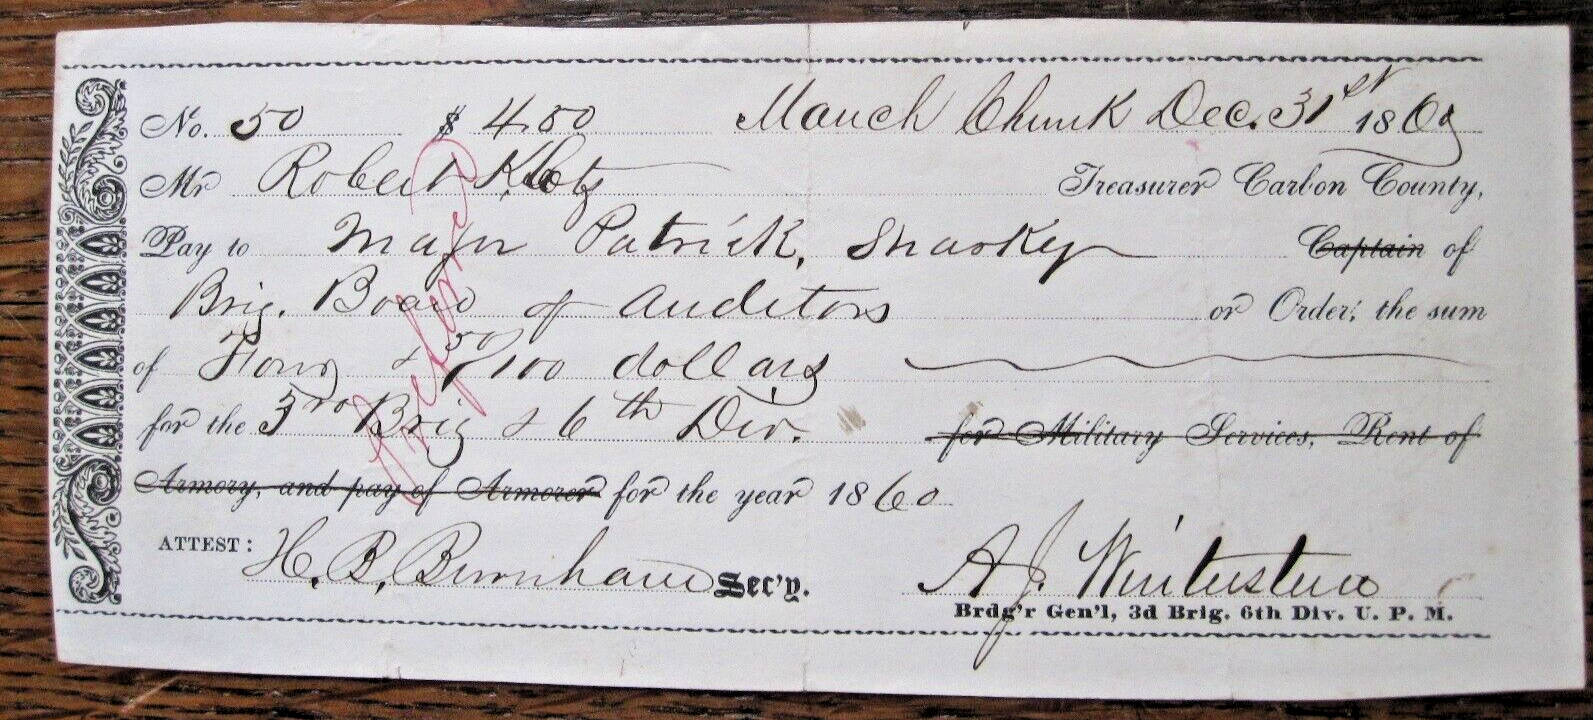 No. 50 $ 4.50 Mauch Chunk Dec. 31st 1860
Mr Robert Klotz Treasurer Carbon County,
Pay to Major Patrick, Sharkey Captain of
Brig. Board of Auditors or Order; the sum
of Four & 50/100 dollars
for the 3rd Brig & 6th Div. for Military Services, Rent of
Armory, and pay of Armorer for the year 1860
ATTEST: H. B. Burnham Sec'y. A J. Winterstein
Brdg'r Gen'l, 3d Brig. 6th Div. U. P. M.